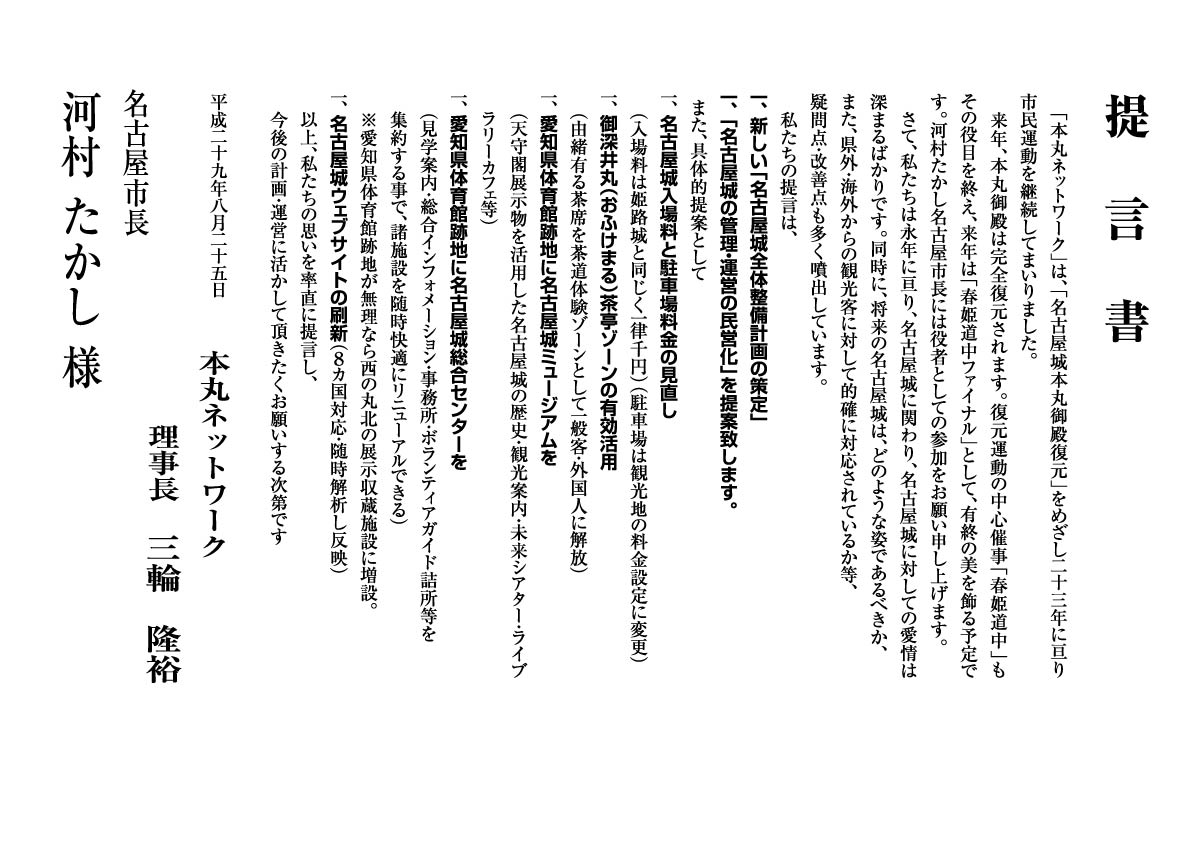 提言書
「本丸ネットワーク」は、「名古屋城本丸御殿復元」をめざし二十三年に亘り
市民運動を継続してまいりました。
来年、本丸御殿は完全復元されます。復元運動の中心催事「春姫道中」も
その役目を終え、来年は「春姫道中ファイナル」として、有終の美を飾る予定で
す。河村たかし名古屋市長には役者としての参加をお願い申し上げます。
さて、私たちは永年に亘り、名古屋城に関わり、名古屋城に対しての愛情は
深まるばかりです。同時に、将来の名古屋城は、どのような姿であるべきか、
また、県外・海外からの観光客に対して的確に対応されているか等、
疑問点・改善点も多く噴出しています。
私たちの提言は、
一、新しい「名古屋城全体整備計画の策定」
一、「名古屋城の管理・運営の民営化」を提案致します。
また、具体的提案として
一、名古屋城入場料と駐車場料金の見直し
（入場料は姫路城と同じく一律千円）（駐車場は観光地の料金設定に変更）
一、御深井丸（おふけまる）茶亭ゾーンの有効活用
（由緒有る茶席を茶道体験ゾーンとして一般客・外国人に解放）
一、愛知県体育館跡地に名古屋城ミュージアムを
（天守閣展示物を活用した名古屋城の歴史・観光案内・未来シアター・ライブ
ラリーカフェ等）
一、愛知県体育館跡地に名古屋城総合センターを
（見学案内・総合インフォメーション・事務所・ボランティアガイド詰所等を
集約する事で、諸施設を随時快適にリニューアルできる）
※愛知県体育館跡地が無理なら西の丸北の展示収蔵施設に増設。
一、名古屋城ウェブサイトの刷新（８カ国対応・随時解析し反映）
以上、私たちの思いを率直に提言し、
今後の計画・運営に活かして頂きたくお願いする次第です
平成二十九年八月二十五日
本丸ネットワーク
理事長 三輪 隆裕
名古屋市長
河村 たかし 様